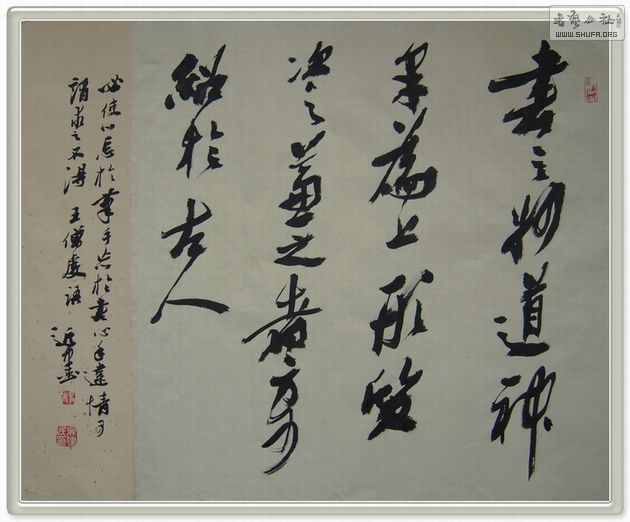 書之妙道神
采為上形質
次之兼之者方可
紹於古人
必使心忘於筆手忘於書心手達情可
謂求之不得 王僧虔語
书艺公社
WWW.SHUFA.ORG